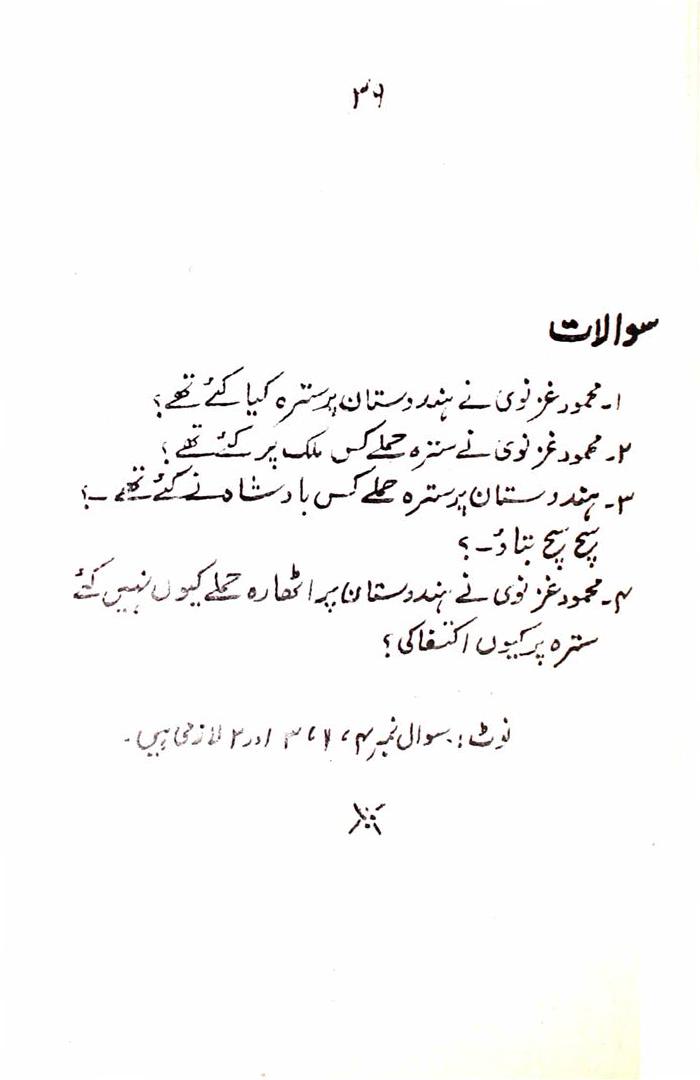 ۳۶
سوالات
۱۔ محمود غزنوی نے ہندوستان پر سترہ کیا کئے تھے؟
۲۔ محمود غزنوی نے سترہ حملے کس ملک پر کئے تھے؟
۳۔ ہندوستان پر سترہ حملے کس بادشاہ نے کئے تھے۔؟
سچ سچ بتاؤ۔؟
۴۔ محمود غزنوی نے ہندوستان پر اٹھارہ حملے کیوں نہیں کئے
سترہ پر کیوں اکتفا کی؟
نوٹ: سوال نمبر ۴، ۱، ۳ اور ۲ لازمی ہیں۔